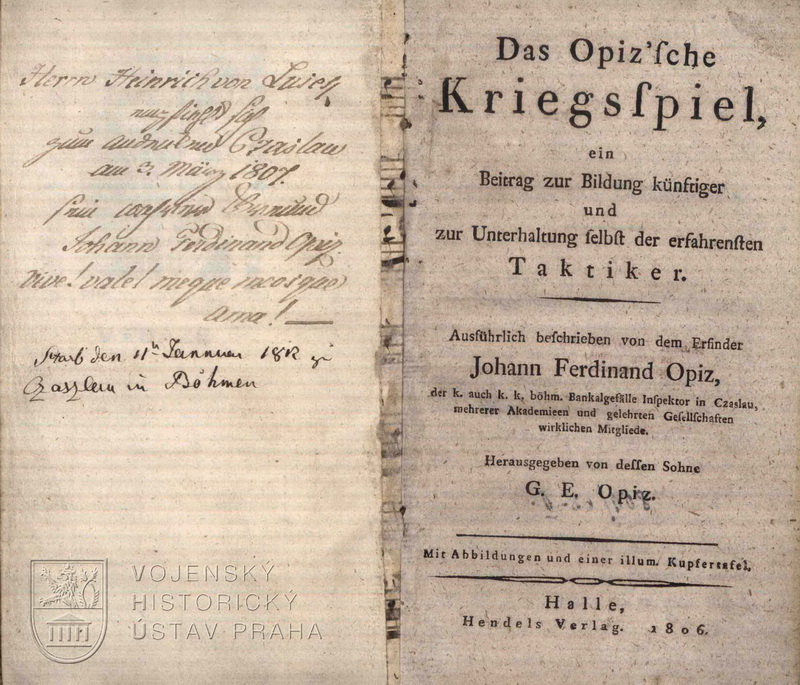 Herrn Heinrich von
zum Andenken Czaslau
am 3. März 1807.
sein wahrer Freund
Johann Ferdinand Opiz.
vive! vale! meque meosque
ama!
starb den 11n Jannuer 1812 zu
in Böhmen
VOJENSKÝ
HISTORICKÝ
ÚSTAV PRAHA
Das Opiz'ſche
Kriegsſpiel,
ein
Beitrag zur Bildung künftiger
und
zur Unterhaltung ſelbſt der erfahrenſten
Taktiker.
Ausführlich beſchrieben von dem Erfinder
Johann Ferdinand Opiz,
der k. auch k. k. böhm. Bankalgefälle Inſpektor in Czaslau,
mehrerer Akademieen und gelehrten Geſellſchaften
wirklichen Mitgliede.
Herausgegeben von deſſen Sohne
G. E. Opiz.
Mit Abbildungen und einer illum. Kupfertafel.
Halle,
Hendels Verlag. 1806.